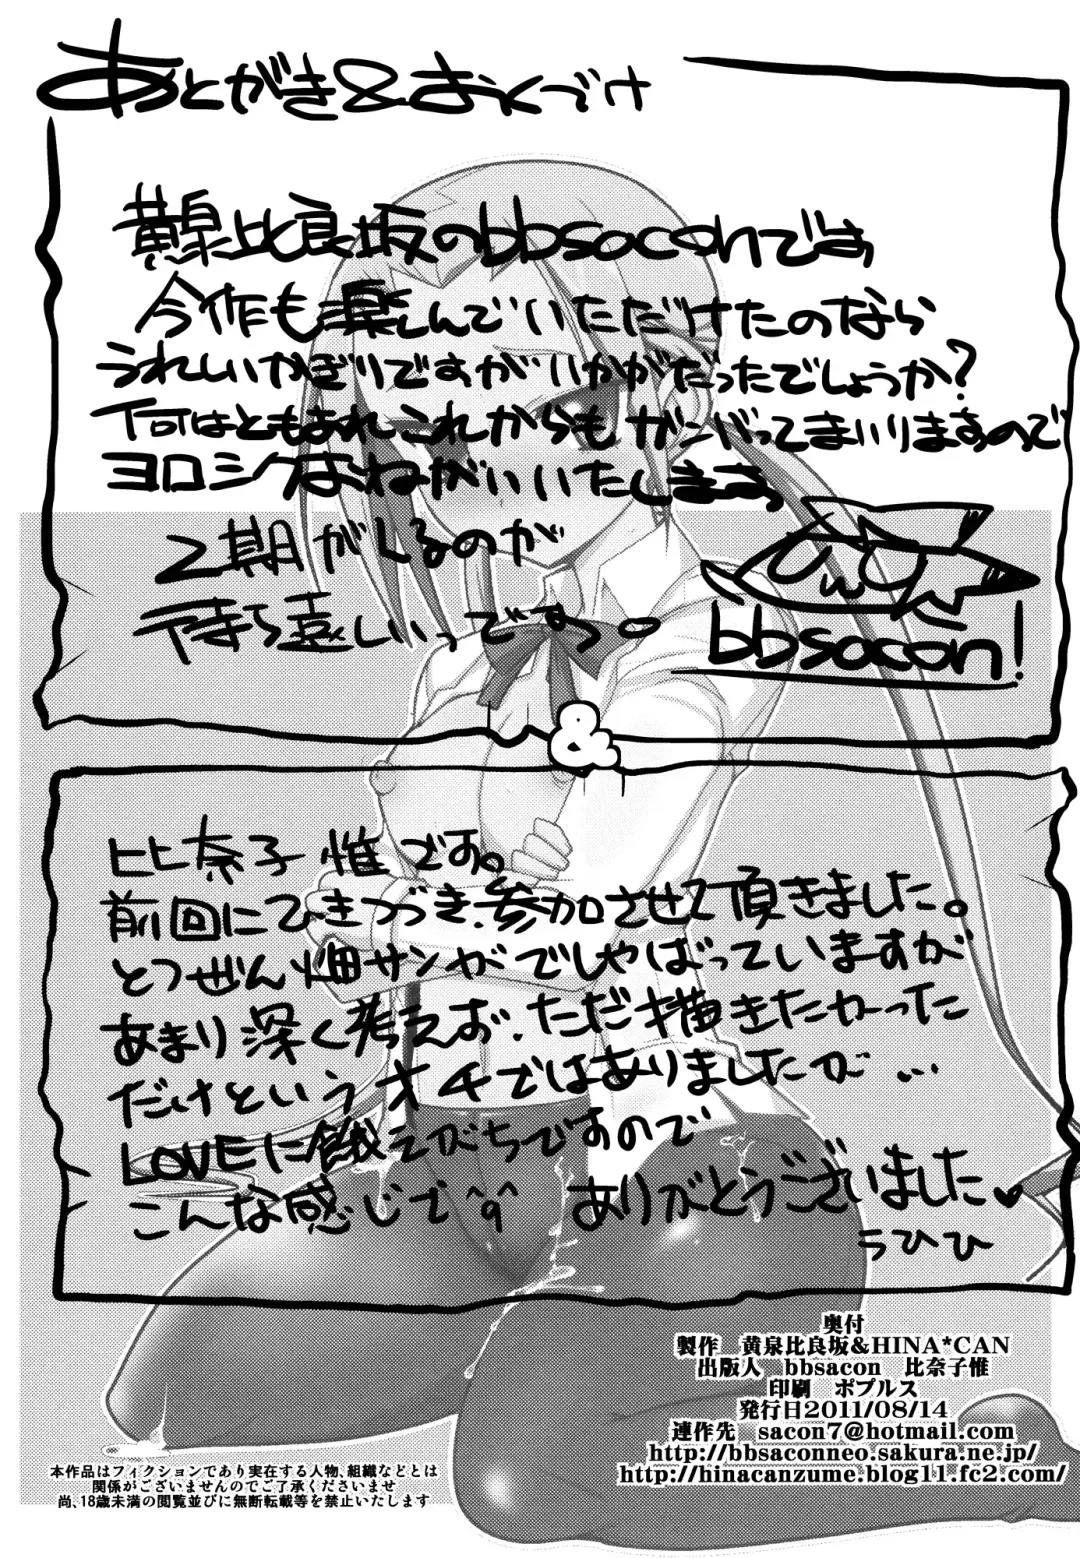 あとがき&おくづけ
黄泉比良坂のbbsaconです
今作も楽しんでいただけたのなら
うれしいかぎりですがいかがだったでしょうか？
何はともあれこれからもガンバってまいりますので
ヨロシクおねがいいたします
2期がくるのが
待ち遠しいっですっ。
bbsacon!
&
比奈子 惟です。
前回にひきつづき、参加させて頂きました。
とつぜん畑サンがでしゃばっていますが
あまり深く考えず、ただ描きたかった
だけというオチではありましたが…
LOVEに餓えがちですので
こんな感じで^q^ ありがとうございました♥
うひひ
奥付
製作 黄泉比良坂&HINA*CAN
出版人 bbsacon 比奈子惟
印刷 ポプルス
発行日2011/08/14
連作先 sacon7@hotmail.com
http://bbsaconneo.sakura.ne.jp/
http://hinacanzume.blog11.fc2.com/
本作品はフィクションであり実在する人物、組織などとは
関係がございませんのでご了承くださいませ
尚、18歳未満の閲覧並びに無断転載等を禁止いたします